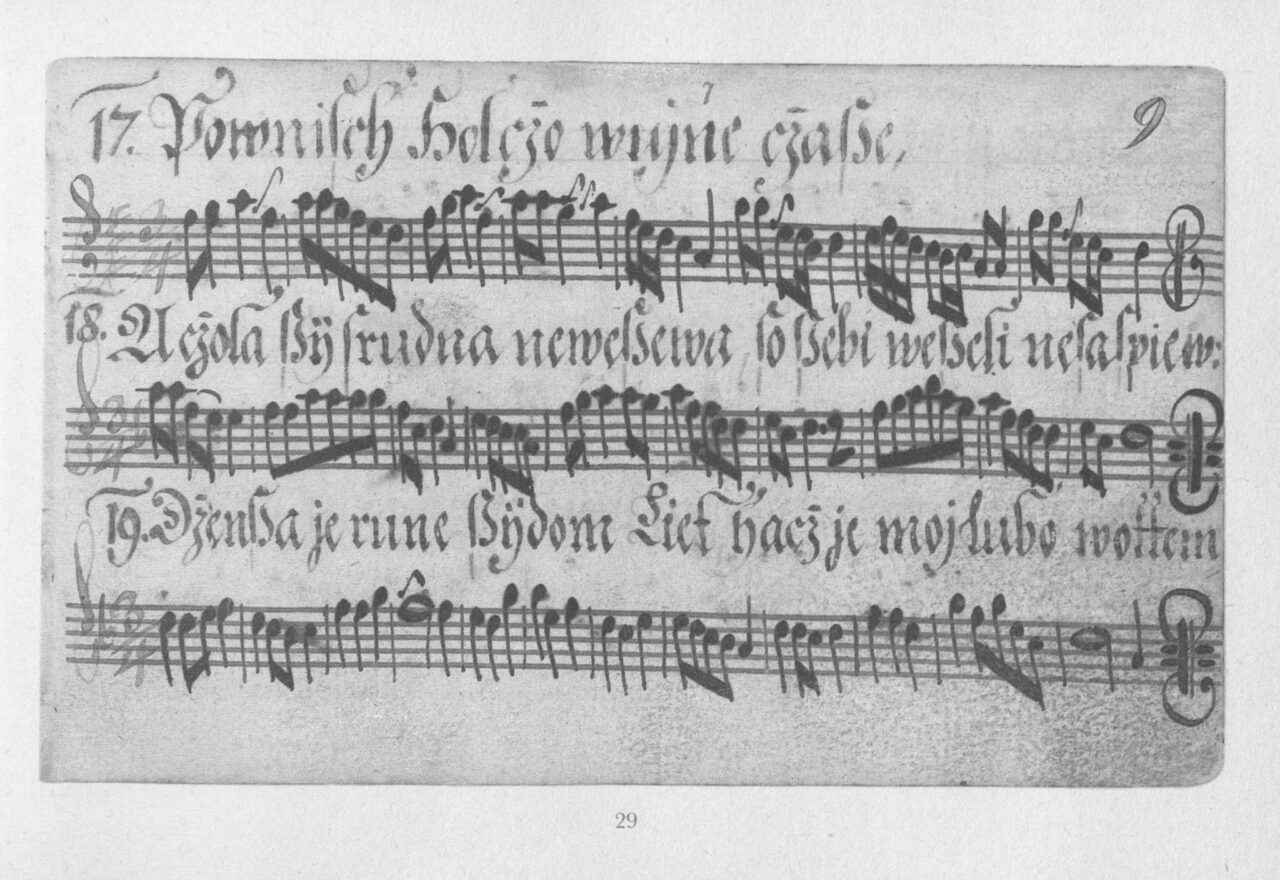 17. Powniſch Holcżo wujńe cżaße,
9
18. A cżola ßÿ ſrudna neweßewa, ſo ßebi weßeli neſaſpiew:
19. Dżenßa je rune ßÿdom Liet hacż je moj lubo wottem
29